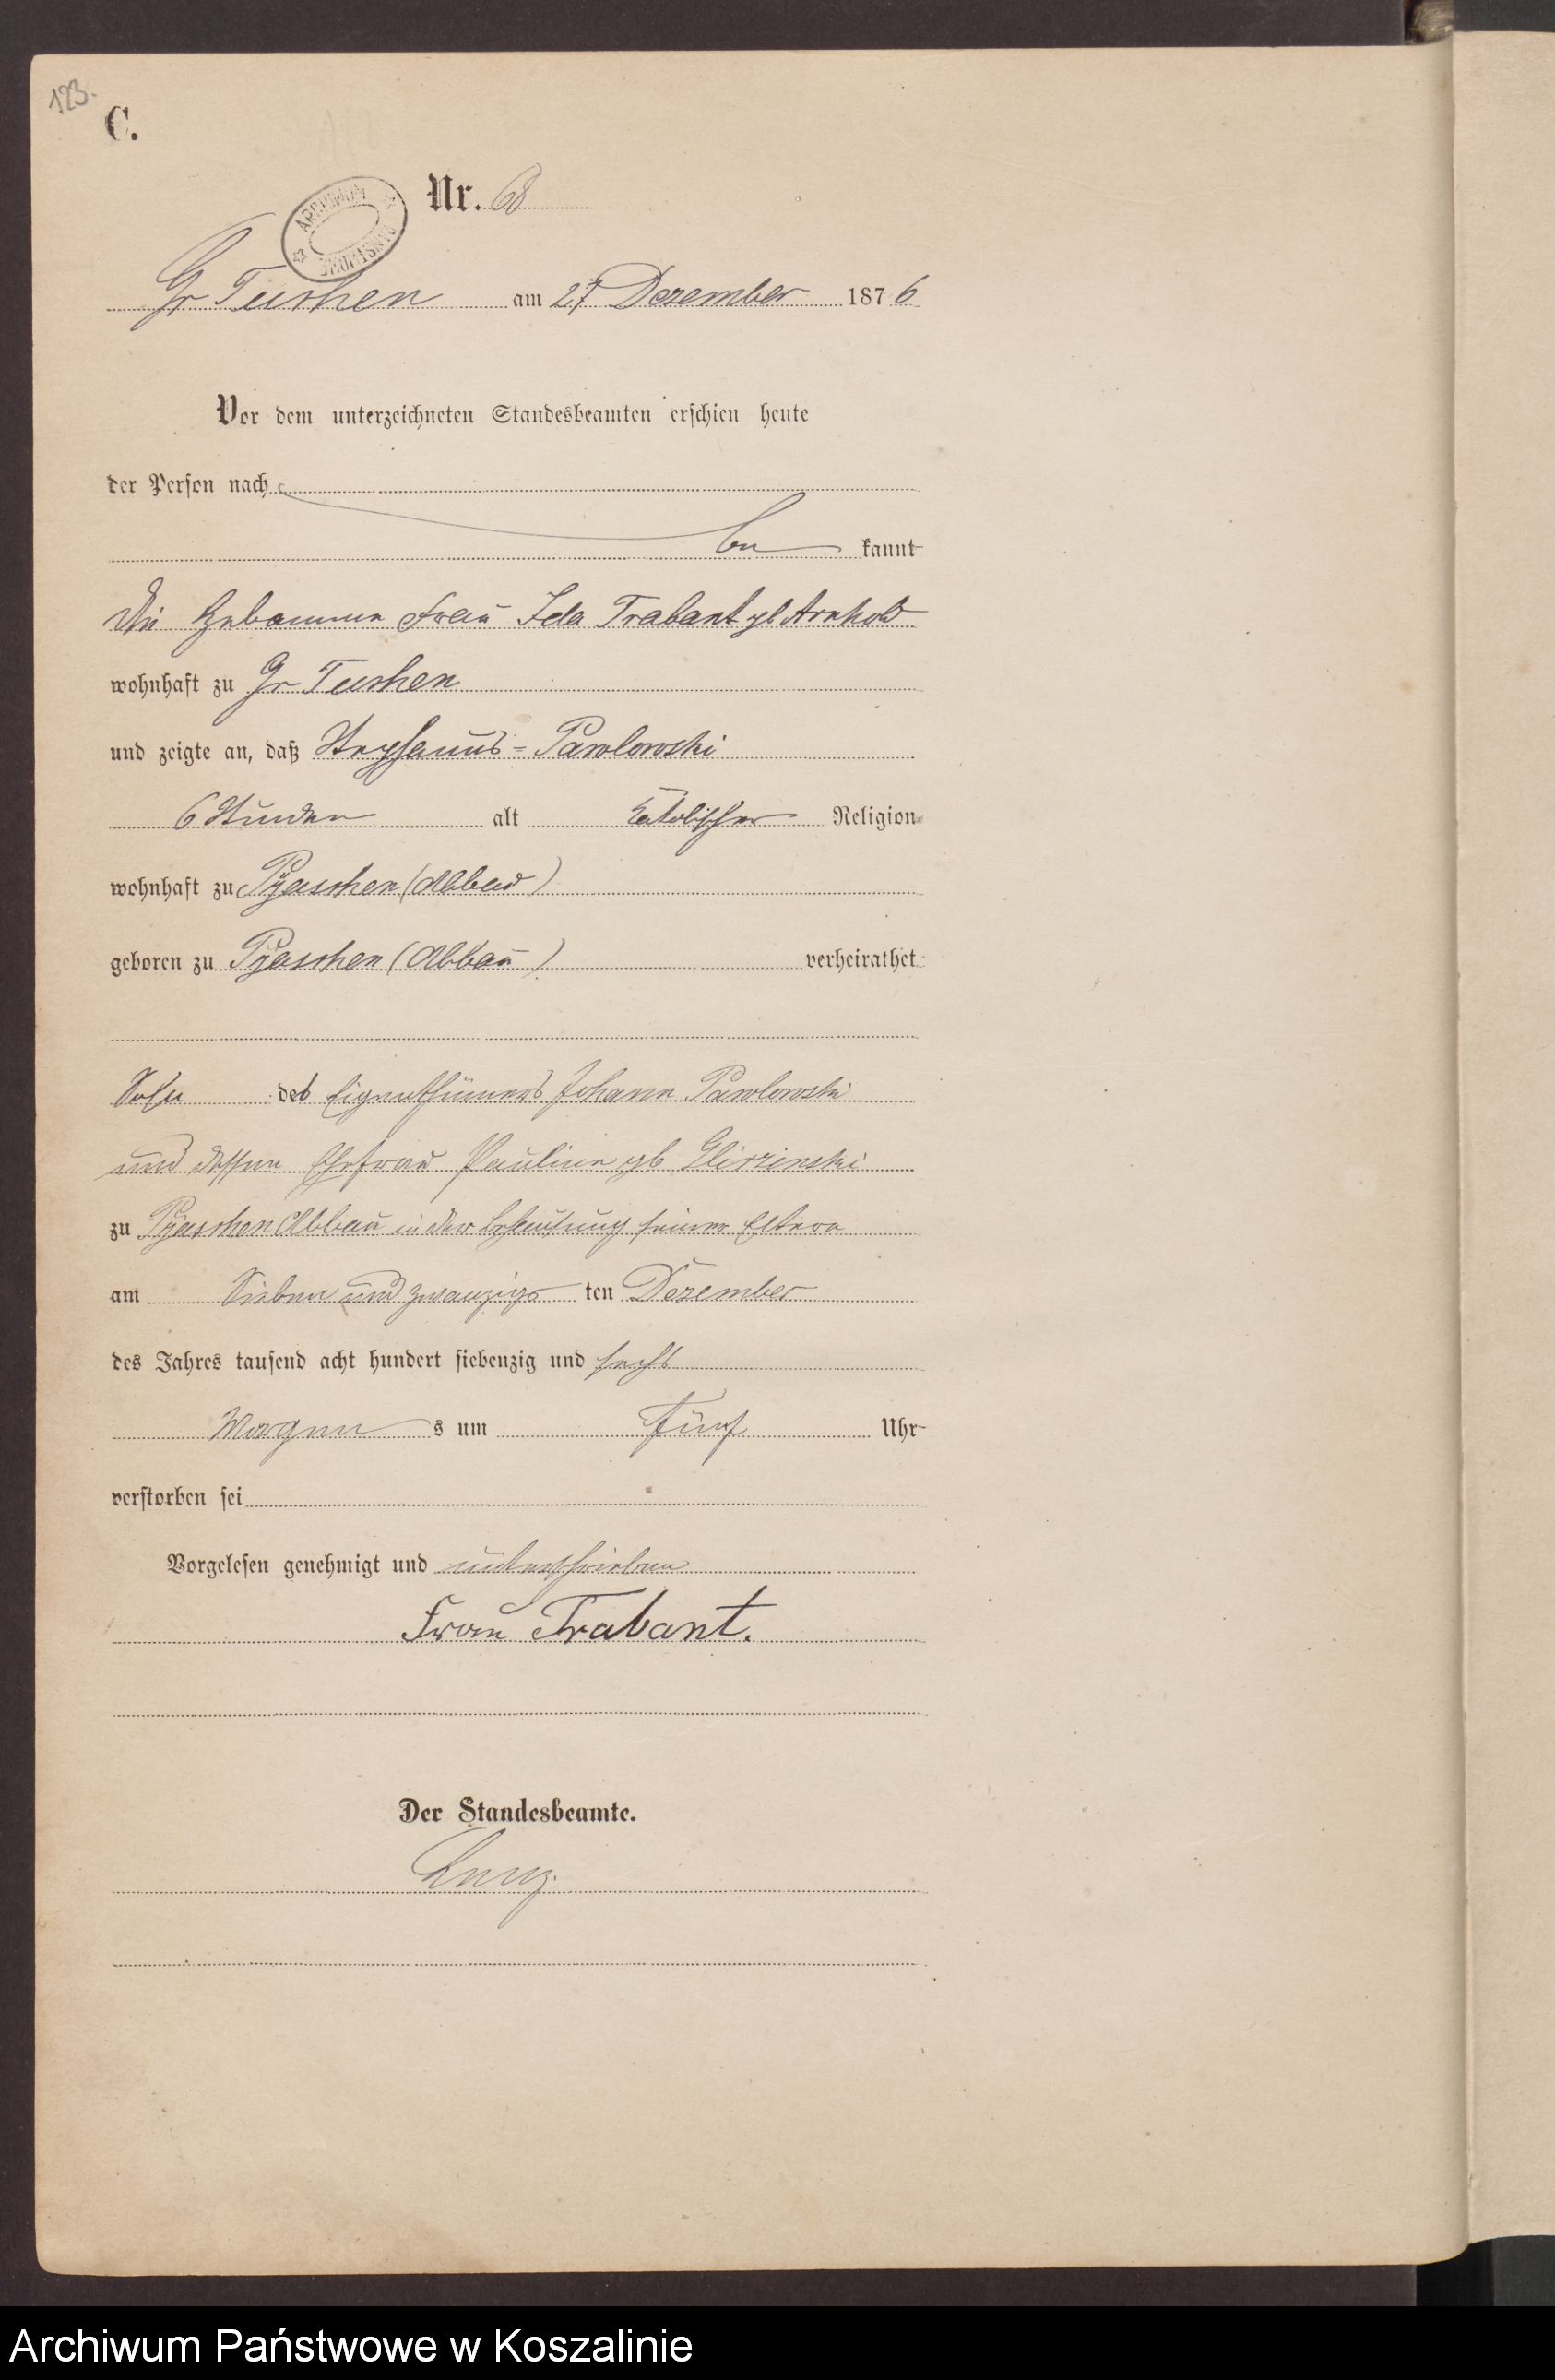 123.
C.
Nr. 68
ARCHIWUM
Gr Tuchen am 27 Dezember 1876
Vor dem unterzeichneten Standesbeamten erschien heute
der Person nach
be kannt
Die Hebamme Frau Ida Trabant gb Arnhold
wohnhaft zu Gr Tuchen
und zeigte an, daß Pawlowski
6 Stunden alt katolischer Religion
wohnhaft zu Pyaschen (Abbau)
geboren zu Pyaschen (Abbau) verheirathet
Sohn des Eigenthümers Johann Pawlowski
und dessen Ehefrau Pauline gb
zu Pyaschen Abbau in der Behausung seiner Eltern
am Sieben und zwanzigs ten Dezember
des Jahres tausend acht hundert siebenzig und sechs
Morgen s um Fünf Uhr
verstorben sei
Vorgelesen genehmigt und unterschrieben
Frau Trabant.
Der Standesbeamte.
Archiwum Państwowe w Koszalinie